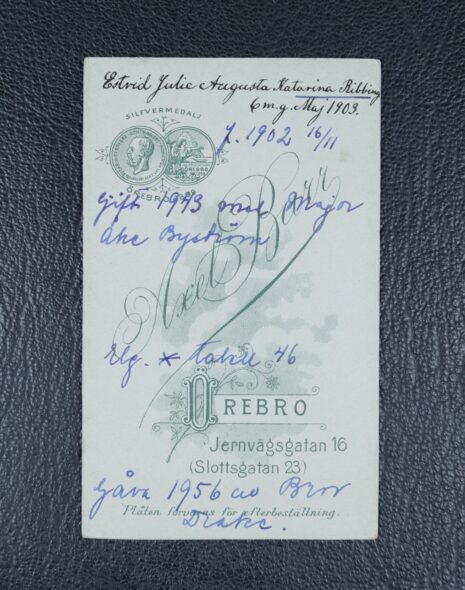 Estrid Julie Augusta Katarina Ribbing
6 m.g. Maj 1903.
SILFVERMEDALJ
f. 1902 16/11
ÖREBRO
Gift 1943 med Major
Åke Byström
Axel
Elg. * tabell 46
ÖREBRO
Jernvägsgatan 16
(Slottsgatan 23)
Gåva 1956 av Bror
Plåten förvaras för efterbeställning.
Drake.